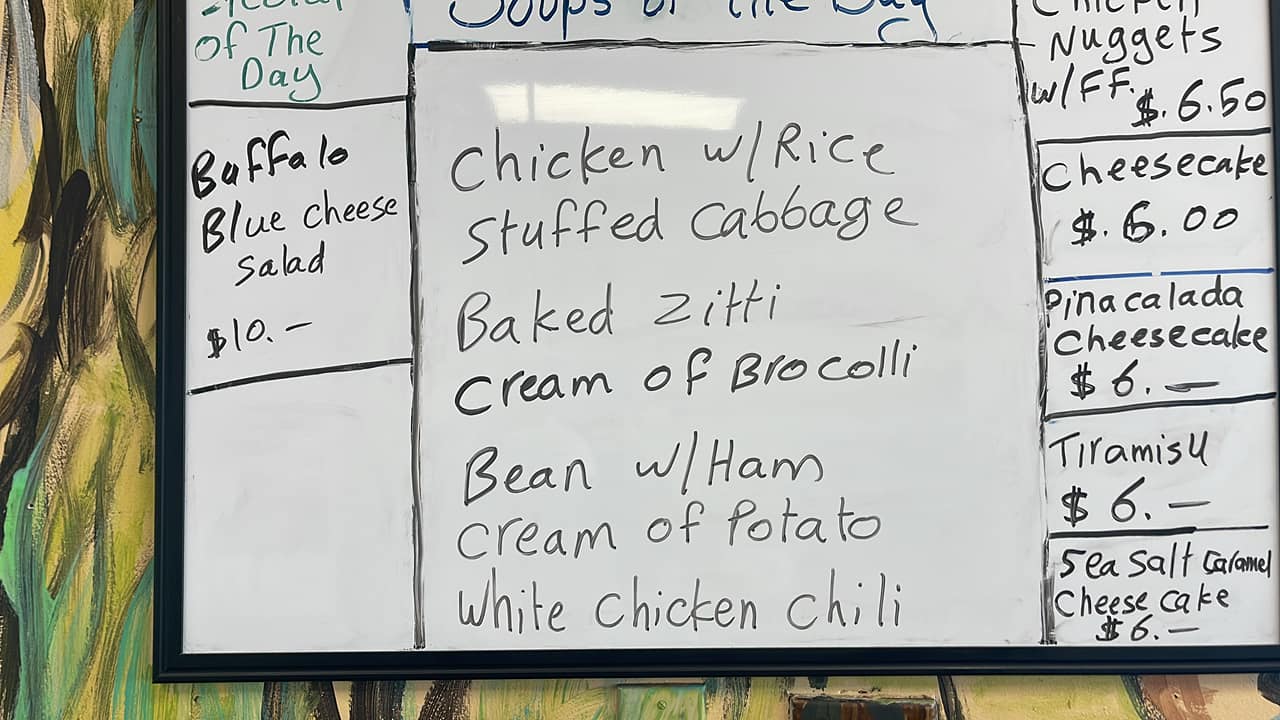 Of The
Day
Buffalo
Blue cheese
salad
$10.-
Soups of The Day
Chicken w/Rice
Stuffed Cabbage
Baked Zitti
Cream of Brocolli
Bean w/Ham
Cream of Potato
White Chicken Chili
Chicken
Nuggets
w/FF.
$.6.50
Cheesecake
$.6.00
Pinacalada
Cheesecake
$6.-
Tiramisu
$6.-
Sea Salt Caramel
Cheese cake
$6.-